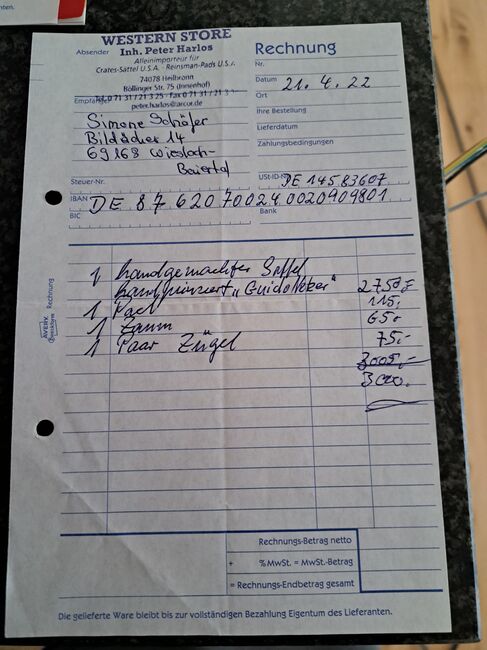 WESTERN STORE
Absender
Inh. Peter Harlos
Alleinimporteur für
Crates-Sättel U.S.A. - Reinsman-Pads U.S.A.
74078 Heilbronn
Böllinger Str. 75 (Innenhof)
Tel. 0 71 31 / 21 3 25 · Fax 0 71 31 / 21 3
peter.harlos@arcor.de
Empfänger
Simone Schäfer
Bildäcker 14
69168 Wiesloch-
Baiertal
Rechnung
Nr.
Datum 21. 4. 22
Ort
Ihre Bestellung
Lieferdatum
Zahlungsbedingungen
Steuer-Nr.
USt-ID-Nr. DE 14583607
IBAN DE 87 620 700 24 00 20909801
BIC
Bank
AVERY Zweckform Rechnung
1 handgemachter Sattel
handpunziert "Guido
1 Pad 115,-
1 Zaum 65,-
1 Paar Zügel 75,-
3005,-
3000,-
Rechnungs-Betrag netto
+ % MwSt. = MwSt.-Betrag
= Rechnungs-Endbetrag gesamt
Die gelieferte Ware bleibt bis zur vollständigen Bezahlung Eigentum des Lieferanten.